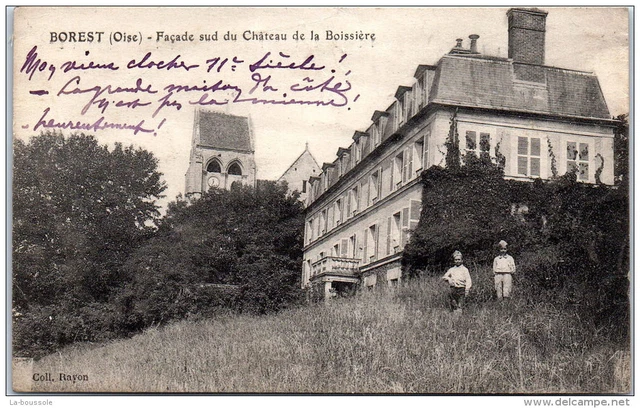 BOREST (Oise) - Façade sud du Château de la Boissière
Moy vieux clocher 11e Siècle !
- La grande maison d'à côté
n'est pas la mienne
- heureusement !
Coll. Rayon
La-boussole
www.delcampe.net